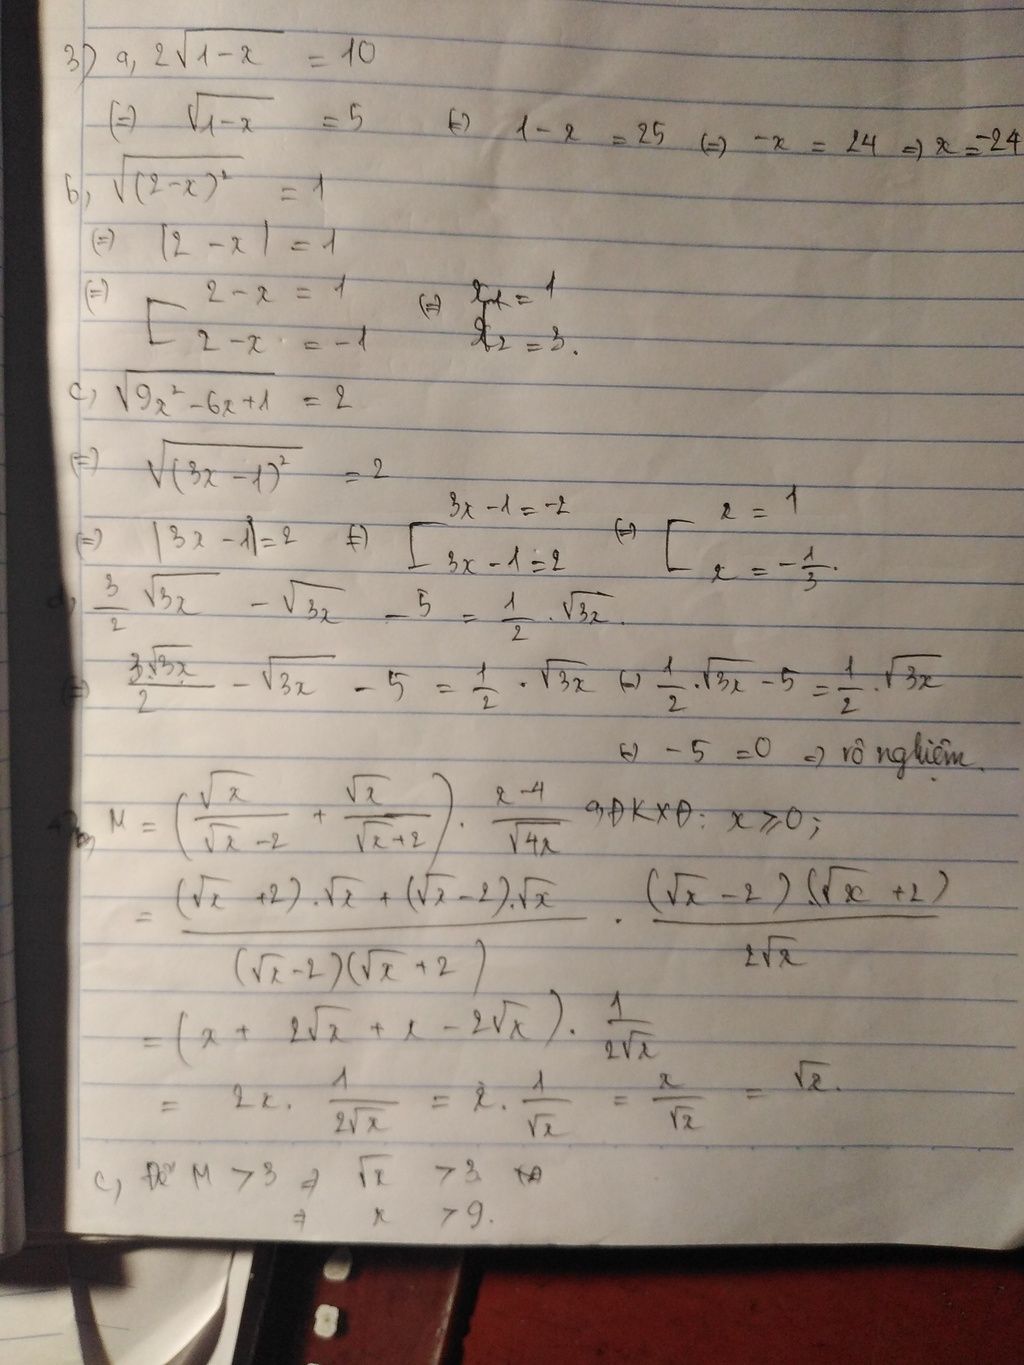 3) a, 2√(1-x) = 10
(=) √(1-x) = 5 (=) 1-x = 25 (=) -x = 24 => x = -24
b, √((2-x)²) = 1
(=) |2-x| = 1
(=) [ 2-x = 1 (=) x₁ = 1
2-x = -1 x₂ = 3.
c, √(9x²-6x+1) = 2
(=) √((3x-1)²) = 2
(=) |3x-1| = 2 (=) [ 3x-1 = -2 (=) [ x = 1
3x-1 = 2 x = -1/3.
d, 3/2 √3x - √3x - 5 = 1/2 . √3x.
(=) 3√3x/2 - √3x - 5 = 1/2 . √3x (=) 1/2 . √3x - 5 = 1/2 . √3x
(=) -5 = 0 => vô nghiệm.
b, M = (√x/(√x-2) + √x/(√x+2)) . (x-4)/√4x a, ĐKXĐ: x ⩾ 0;
= ((√x+2).√x + (√x-2).√x)/((√x-2)(√x+2)) . ((√x-2).(√x+2))/(2√x)
= (x + 2√x + x - 2√x). 1/(2√x)
= 2x. 1/(2√x) = x. 1/√x = x/√x = √x.
c, Để M > 3 => √x > 3
=> x > 9.